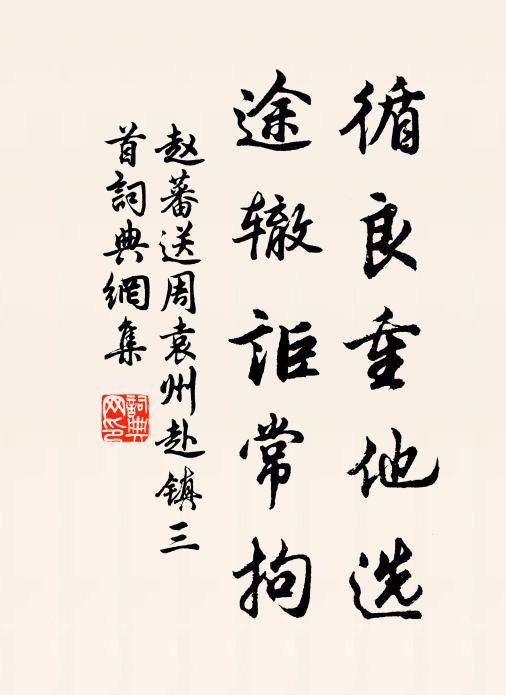 循良重他选
途辙詎常拘
赵蕃送周袁州赴镇三
首詞典網集
詞典
网印